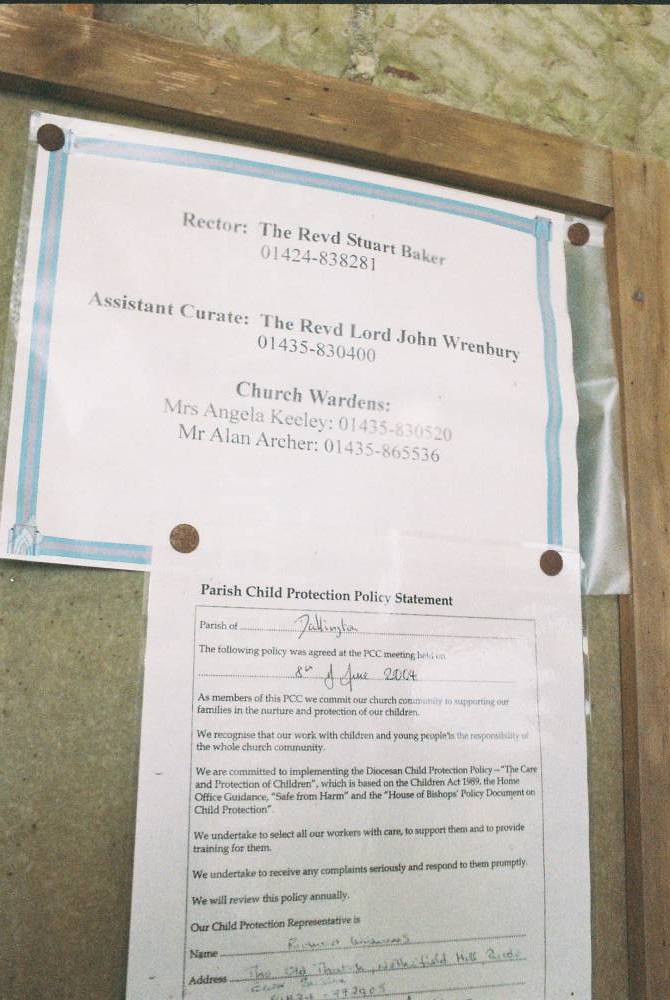 Rector: The Revd Stuart Baker
01424-838281
Assistant Curate: The Revd Lord John Wrenbury
01435-830400
Church Wardens:
Mrs Angela Keeley: 01435-830520
Mr Alan Archer: 01435-865536
Parish Child Protection Policy Statement
Parish of Dallington
The following policy was agreed at the PCC meeting held on
8th of June 2004
As members of this PCC we commit our church community to supporting our
families in the nurture and protection of our children.
We recognise that our work with children and young people is the responsibility of
the whole church community.
We are committed to implementing the Diocesan Child Protection Policy – "The Care
and Protection of Children", which is based on the Children Act 1989, the Home
Office Guidance, "Safe from Harm" and the "House of Bishops' Policy Document on
Child Protection".
We undertake to select all our workers with care, to support them and to provide
training for them.
We undertake to receive any complaints seriously and respond to them promptly.
We will review this policy annually.
Our Child Protection Representative is
Name
Address The Old Hill